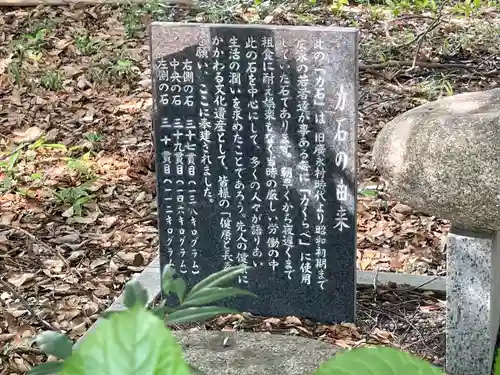 力石の由来
此の「力石」は、旧廣永村時代より昭和初期まで
広永の若者達が事ある毎に「力くらべ」に使用
していた石であります。朝早くから夜遅くまで
粗食に耐え娯楽もなく過した厳しい労働の中
此の石を中心にして、多くの人々が語りあい
生活の潤いを求めたことであろう。先人の偉業に
かかわる文化遺産として、皆様の「健康と長
を願い、ここに奉建されました。
右側の石 三十七貫目(一三八キログラム)
中央の石 三十九貫目(一四六キログラム)
左側の石 三十貫目(一一二キログラム